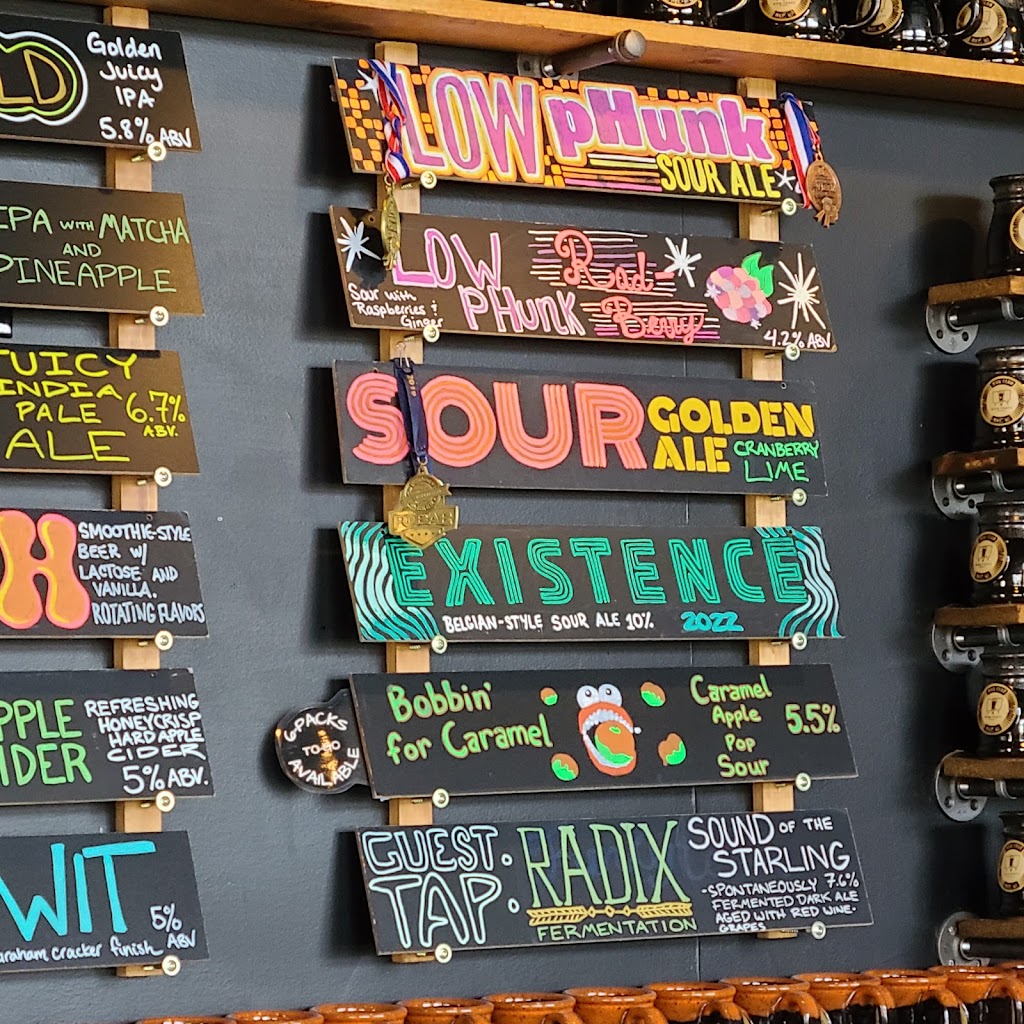 LD
Golden
Juicy
IPA
5.8% ABV
IPA WITH MATCHA
AND
PINEAPPLE
JUICY
INDIA
PALE
ALE
6.7%
A.B.V.
H
SMOOTHIE-STYLE
BEER W/
LACTOSE AND
VANILLA.
ROTATING FLAVORS
APPLE
CIDER
REFRESHING
HONEYCRISP
HARD APPLE
CIDER
5% ABV.
WIT
5%
ABV
graham cracker finish
LOW pHunk
SOUR ALE
LOW
PHUNK
Rad-
Berry
Sour with
Raspberries &
Ginger
4.2% ABV
SOUR
GOLDEN
ALE
CRANBERRY
LIME
EXISTENCE
BELGIAN-STYLE SOUR ALE 10% 2022
6-PACKS
TO-GO
AVAILABLE
Bobbin'
for Caramel
Caramel
Apple
Pop
Sour
5.5%
GUEST
TAP.
RADIX
FERMENTATION
SOUND OF THE
STARLING
-SPONTANEOUSLY 7.6%
FERMENTED DARK ALE
AGED WITH RED WINE-
GRAPES